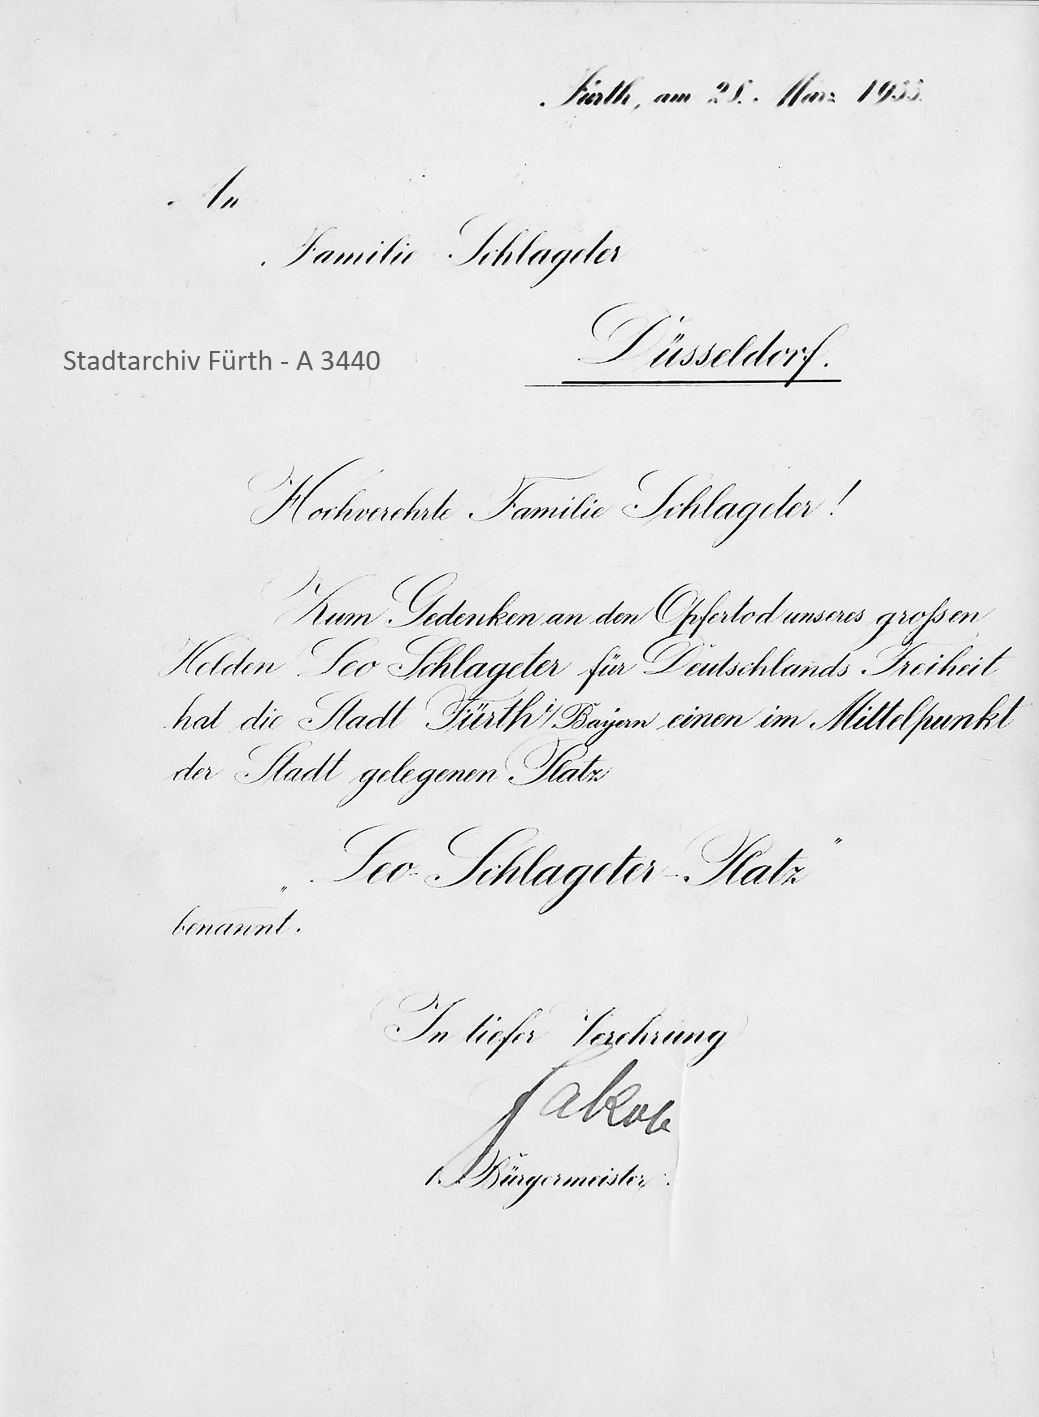 Fürth, am 28. März 1933.
An
Familie Schlageter
Düsseldorf.
Stadtarchiv Fürth - A 3440
Hochverehrte Familie Schlageter!
Zum Gedenken an den Opfertod unseres grossen
Helden Leo Schlageter für Deutschlands Freiheit
hat die Stadt Fürth i/Bayern einen im Mittelpunkt
der Stadt gelegenen Platz
„Leo-Schlageter-Platz"
benannt.
In tiefer Verehrung
Jakob
1. Bürgermeister.